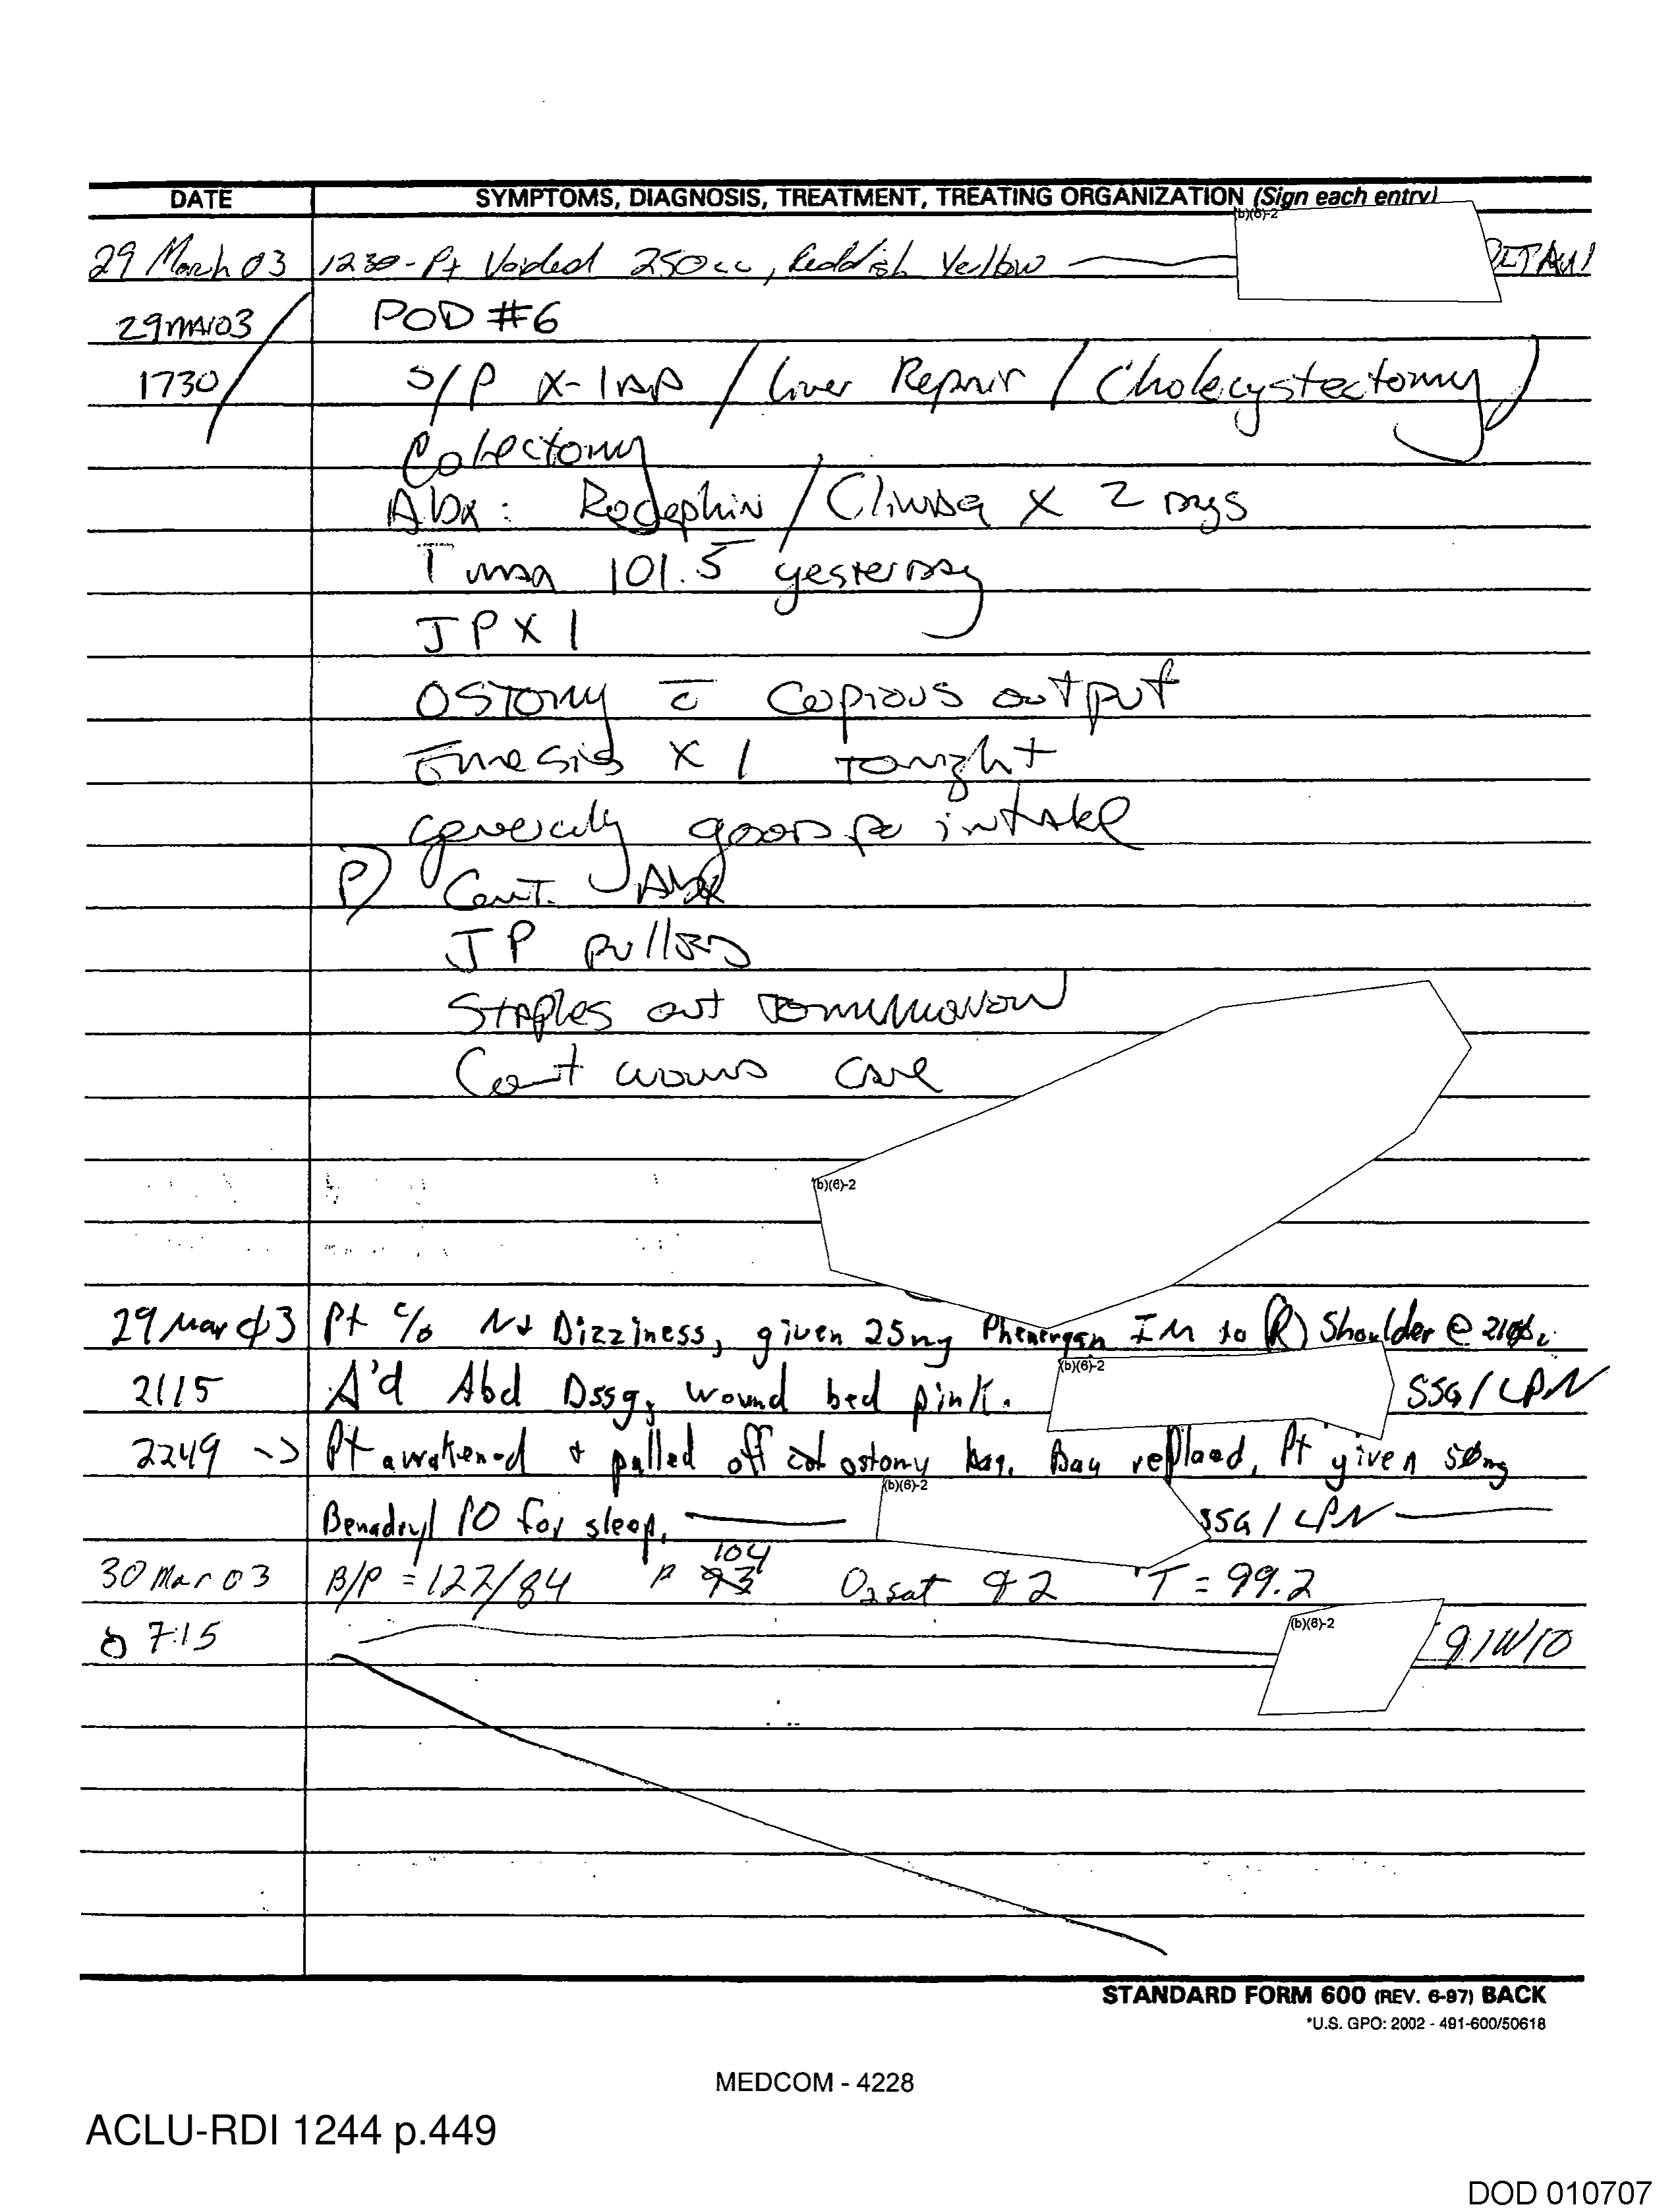 DATE SYMPTOMS, DIAGNOSIS, TREATMENT, TREATING ORGANIZATION (Sign each entry)
(b)(6)-2
29 March 03 1230-Pt Voided 250cc, Reddish Yellow
29MAR03 POD #6
1730 S/P X-lap / Liver Repair / Cholecystectomy /
Colectomy
Abx: Rocephin / Clinda x 2 days
T max 101.5 yesterday
JP X 1
OSTOMY c̄ copious output
Emesis X 1 tonight
generally good po intake
P) Cont. Abx
JP pulled
Staples out tomorrow
Cont wound care
(b)(6)-2
29 Mar 03 Pt c/o N+ Dizziness, given 25mg Phenergan IM to (R) Shoulder @
2115 Δ'd Abd Dssg, wound bed pink. (b)(6)-2 SSG / LPN
2249 -> Pt awakened + pulled off ostomy bag. Bag replaced, Pt given 50mg
Benadryl PO for sleep. (b)(6)-2 SSG / LPN
30 Mar 03 B/P = 122/84 P 93 104 O2 sat 92 T = 99.2
0715 (b)(6)-2 91W10
STANDARD FORM 600 (REV. 6-97) BACK
*U.S. GPO: 2002 - 491-600/50618
MEDCOM - 4228
ACLU-RDI 1244 p.449
DOD 010707